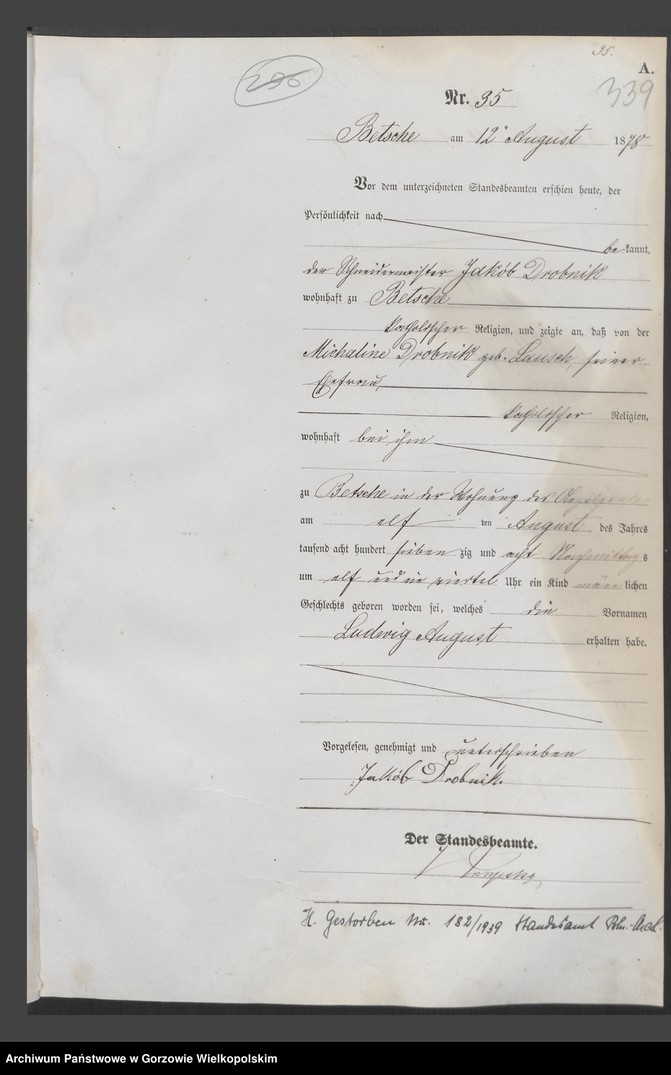 35.
A.
236
339
Nr. 35
Betsche am 12ⁿ August 1878
Vor dem unterzeichneten Standesbeamten erschien heute, der
Persönlichkeit nach
bekannt,
der Schneidermeister Jakób Drobnik
wohnhaft zu Betsche
katholischer Religion, und zeigte an, daß von der
Michaline Drobnik geb. Lausch, seiner
Ehefrau,
katholischer Religion,
wohnhaft bei ihm
zu Betsche in der Wohnung des
am elf ten August des Jahres
tausend acht hundert sieben zig und acht Nachmittags
um elf und ein viertel Uhr ein Kind männlichen
Geschlechts geboren worden sei, welches die Vornamen
Ludwig August
erhalten habe.
Vorgelesen, genehmigt und unterschrieben
Jakób Drobnik.
Der Standesbeamte.
H. Gestorben Nr. 182/1939 Standesamt
Archiwum Państwowe w Gorzowie Wielkopolskim